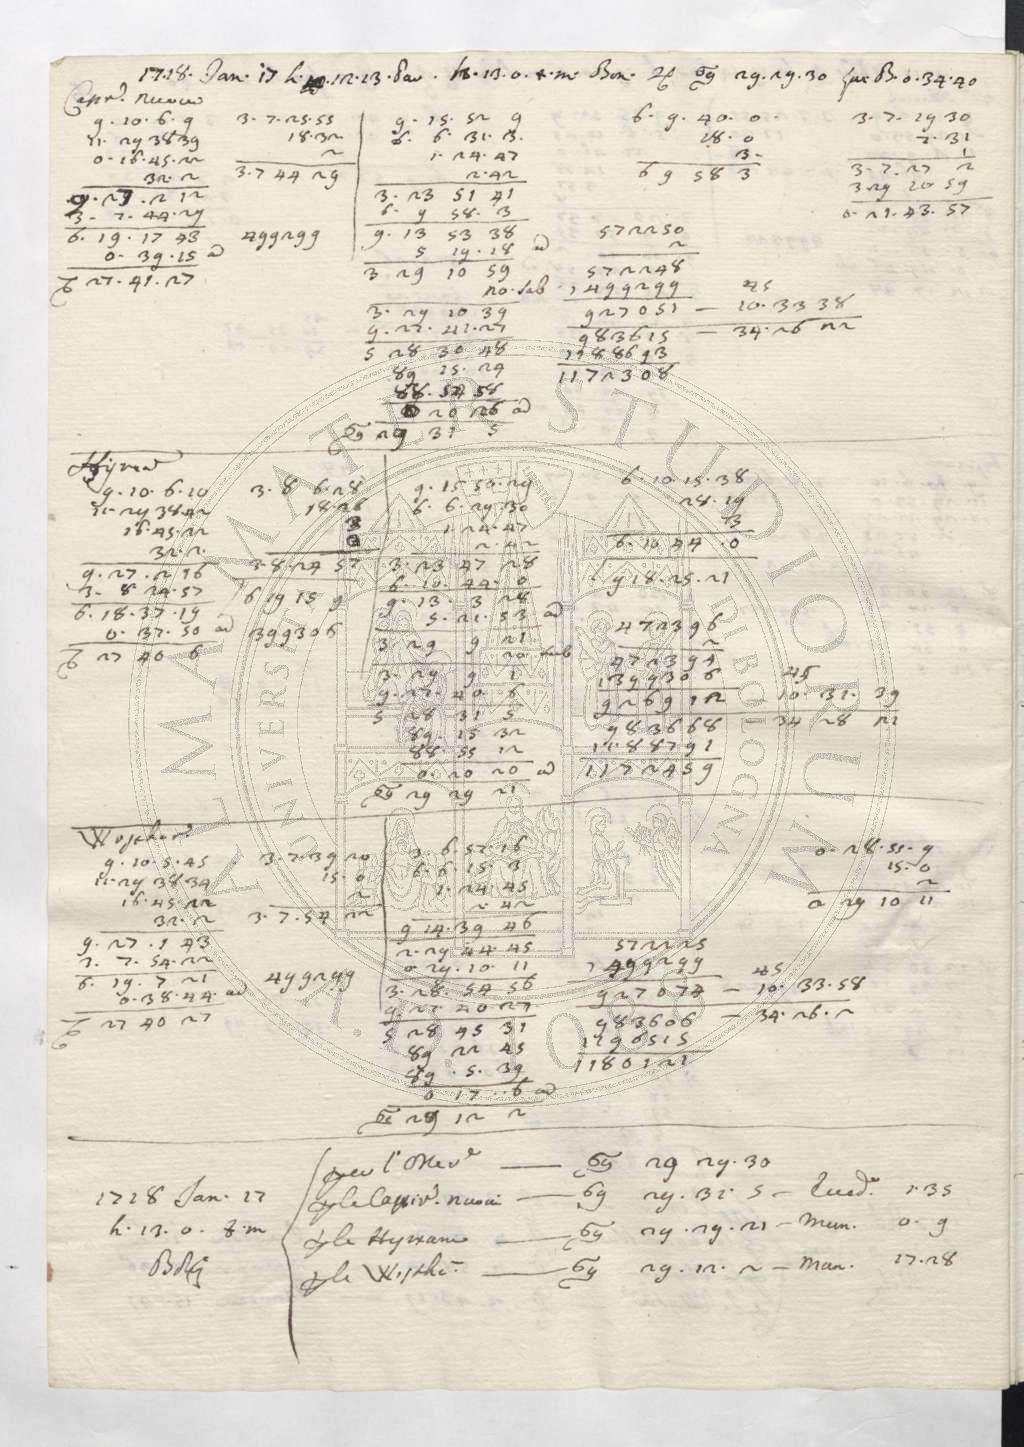 1718. Jan. 17 h. 12. 13. Par. h. 13. 0. t. m. Bon. ♃ ♍ 29. 29. 30 B. 0. 34. 40
Cassin. nuove
9. 10. 6. 9
11. 29 38 39
0. 16. 45. 22
32. 2
9. 27. 2 12
3. 7. 44. 29
6. 19. 17 43
0. 39. 15 ad
♉ 27. 41. 27
3. 7. 25. 55
18. 32
2
3. 7 44 29
499299
9. 15. 52 9
6. 6. 31. 3.
1. 24. 47
2. 42
3. 23 51 41
6. 9 58. 3
9. 13 53 38
5 19. 18 ad
3 29 10 59
20. sub
3. 29 10 39
9. 27. 41. 27
5 28 30 48
89 15. 24
88. 54 58
0 20 26 ad
♍ 29 31 5
6. 9. 40. 0.
18. 0
3.
6 9 58 3
572250
2
572248
1499299
927051 — 45 10. 33 38
983615 — 34. 26 22
1188693
1172308
3. 7. 19 30
7. 31
1
3. 7. 27 2
3 29 10 59
0. 21. 43. 57
Hyrea
9. 10. 6. 10
11. 29 38 42
16. 45. 22
32. 2.
9. 27. 2 16
3. 8 24. 57
6. 18. 37. 19
0. 37. 50 ad
♉ 27 40 6
3. 8 6. 28
18. 26
3
3. 8. 24 57
6 19 15 9
399306
9. 15 50. 29
6. 6. 29. 30
1. 24. 47
2. 42
3. 23 47 28
6. 10. 44. 0
9. 13. 3 28
5. 21. 53 ad
3. 29 9 21
20 sub
3. 29 9 1
9. 27. 40 6
5 28 31 5
89. 15 32
88. 55 12
0. 20 20 ad
♍ 29 29 21
6. 10. 15. 38
28. 19
3
6. 10 44 . 0
9 18. 25. 21
472396
2
472394
1399306
926912 45 10. 31. 39
983668 34 28 21
1188791
1172459
Wisthon.
9. 10. 5. 45
11. 29 38 34
16. 45. 22
32. 2
9. 27. 1 43
3. 7. 54. 22
6. 19. 7 21
0. 38. 44. ad
♉ 27 40 27
3. 7. 39 20
15. 0
2
3. 7. 54 22
499299
3. 6 57. 16
6. 6. 15. 3
1. 24. 45
2. 42
9 14. 39 46
2. 29 44. 45
0. 29. 10. 11
3. 28. 54 56
9. 27 40 27
5 28 45 31
89 22 45
89. 5. 39
0 17. . 6 ad
♍ 29 12 2
572225
1499299
927074 — 45 10. 33. 58
983606 — 34. 26. 2
1196515
1180121
0. 28. 55. 9
15. 0
2
0 29 10 11
1718 Jan. 17
h. 13. 0. t. m
per l'Oser.e — ♍ 29 29. 30
p le Cassin. nuove — ♍ 29. 31. 5 — Exced. 1. 35
p le Hyreane — ♍ 29. 29. 21 — Man. 0. 9
p le Wisth. — ♍ 29. 12. 2 — Man. 17. 28
ALMA MATER STUDIORUM
UNIVERSITÀ DI BOLOGNA